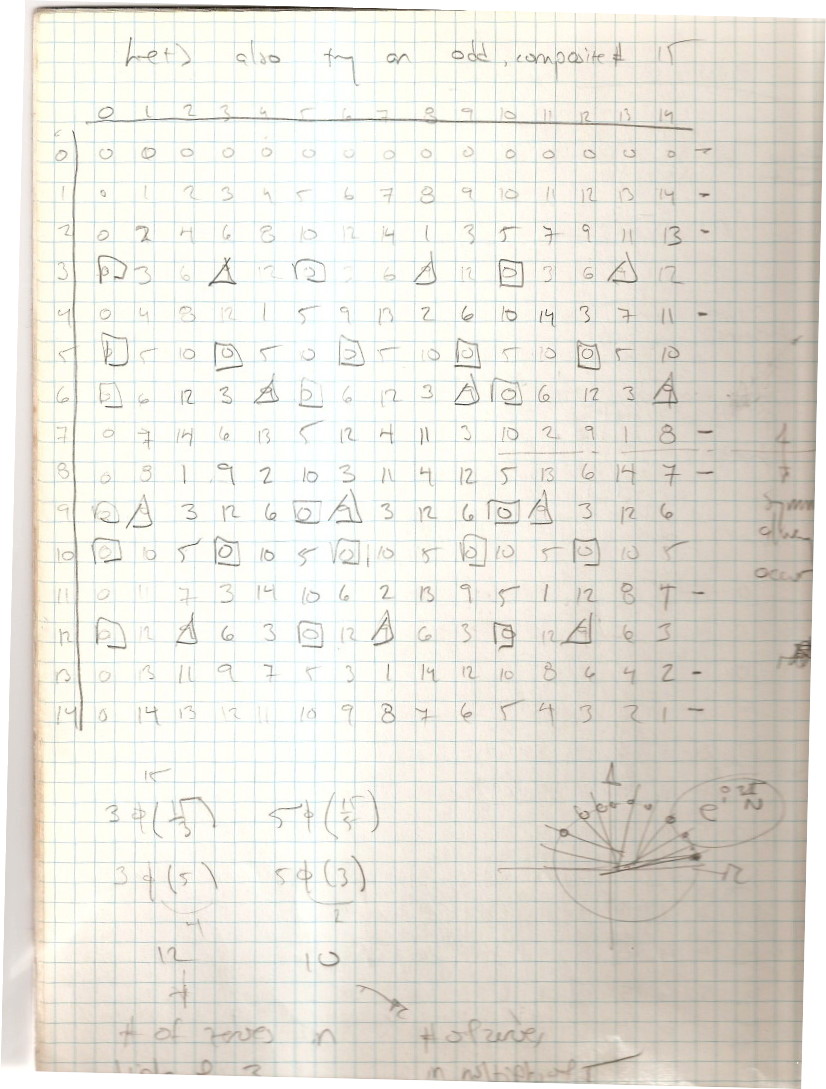 Let's also try an odd, composite # 15
0 1 2 3 4 5 6 7 8 9 10 11 12 13 14
0 0 0 0 0 0 0 0 0 0 0 0 0 0 0 0 -
1 0 1 2 3 4 5 6 7 8 9 10 11 12 13 14 -
2 0 2 4 6 8 10 12 14 1 3 5 7 9 11 13 -
3 0 3 6 9 12 0 3 6 9 12 0 3 6 9 12
4 0 4 8 12 1 5 9 13 2 6 10 14 3 7 11 -
5 0 5 10 0 5 0 0 5 10 0 5 10 0 5 10
6 0 6 12 3 9 0 6 12 3 9 0 6 12 3 9
7 0 7 14 6 13 5 12 4 11 3 10 2 9 1 8 -
8 0 8 1 9 2 10 3 11 4 12 5 13 6 14 7 -
9 0 9 3 12 6 0 9 3 12 6 0 9 3 12 6
10 0 10 5 0 10 5 0 10 5 0 10 5 0 10 5
11 0 11 7 3 14 10 6 2 13 9 5 1 12 8 4 -
12 0 12 9 6 3 0 12 9 6 3 0 12 9 6 3
13 0 13 11 9 7 5 3 1 14 12 10 8 6 4 2 -
14 0 14 13 12 11 10 9 8 7 6 5 4 3 2 1 -
3 φ(15/3) 5 φ(15/5)
3 φ(5) 5 φ(3)
4 2
12 10
# of zeroes in # of zeroes
in multiples of